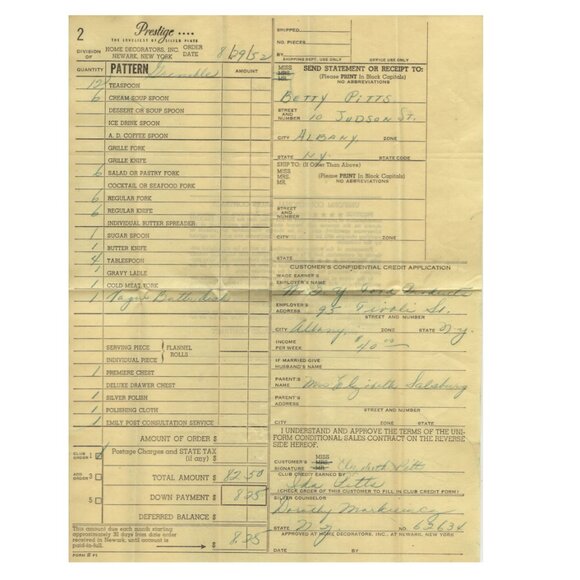 2
Prestige ••••
THE LOVELIEST OF SILVER PLATE
DIVISION OF
HOME DECORATORS, INC.
NEWARK, NEW YORK
ORDER DATE 8/29/52
QUANTITY PATTERN Grenoble AMOUNT
12 TEASPOON
6 CREAM SOUP SPOON
DESSERT OR SOUP SPOON
ICE DRINK SPOON
A. D. COFFEE SPOON
GRILLE FORK
GRILLE KNIFE
6 SALAD OR PASTRY FORK
COCKTAIL OR SEAFOOD FORK
6 REGULAR FORK
6 REGULAR KNIFE
INDIVIDUAL BUTTER SPREADER
1 SUGAR SPOON
1 BUTTER KNIFE
4 TABLESPOON
1 GRAVY LADLE
1 COLD MEAT FORK
1 Butter dish
SERVING PIECE
INDIVIDUAL PIECE
FLANNEL ROLLS
1 PREMIERE CHEST
DELUXE DRAWER CHEST
1 SILVER POLISH
1 POLISHING CLOTH
1 EMILY POST CONSULTATION SERVICE
AMOUNT OF ORDER $
CLUB ORDER 1
Postage Charges and STATE TAX (if any) $
ADD ORDER 3
TOTAL AMOUNT $ 82.50
5
DOWN PAYMENT $ 8.25
DEFERRED BALANCE $
This amount due each month starting
approximately 30 days from date order
received in Newark, until account is
paid-in-full.
$ 8.25
FORM
SHIPPED
NO. PIECES
BY
SHIPPING DEPT. USE ONLY OFFICE USE ONLY
MISS
MRS.
MR.
SEND STATEMENT OR RECEIPT TO:
(Please PRINT In Block Capitals)
NO ABBREVIATIONS
BETTY PITTS
STREET AND NUMBER 10 JUDSON ST.
CITY ALBANY ZONE
STATE N.Y. STATE CODE
SHIP TO: (If Other Than Above)
MISS
MRS.
MR.
(Please PRINT In Block Capitals)
NO ABBREVIATIONS
STREET AND NUMBER
CITY ZONE
STATE
CUSTOMER'S CONFIDENTIAL CREDIT APPLICATION
WAGE EARNER'S
EMPLOYER'S NAME Food Products
EMPLOYER'S ADDRESS 95 Tivoli St.
STREET AND NUMBER
CITY Albany, ZONE STATE N.Y.
INCOME PER WEEK $40.00
IF MARRIED GIVE
HUSBAND'S NAME
PARENT'S NAME Mrs Elizabeth Salsburg
PARENT'S ADDRESS
STREET AND NUMBER
CITY ZONE STATE
I UNDERSTAND AND APPROVE THE TERMS OF THE UNIFORM CONDITIONAL SALES CONTRACT ON THE REVERSE SIDE HEREOF.
CUSTOMER'S SIGNATURE
MISS
MRS.
MR.
Elizabeth Pitts
CLUB CREDIT EARNED BY
Ida
(CHECK ORDER OF THIS CUSTOMER TO FILL IN CLUB CREDIT FORM)
SILVER COUNSELOR
Dorothy
STATE N.Y. NO. 62634
APPROVED AT HOME DECORATORS, INC., AT NEWARK, NEW YORK
DATE BY